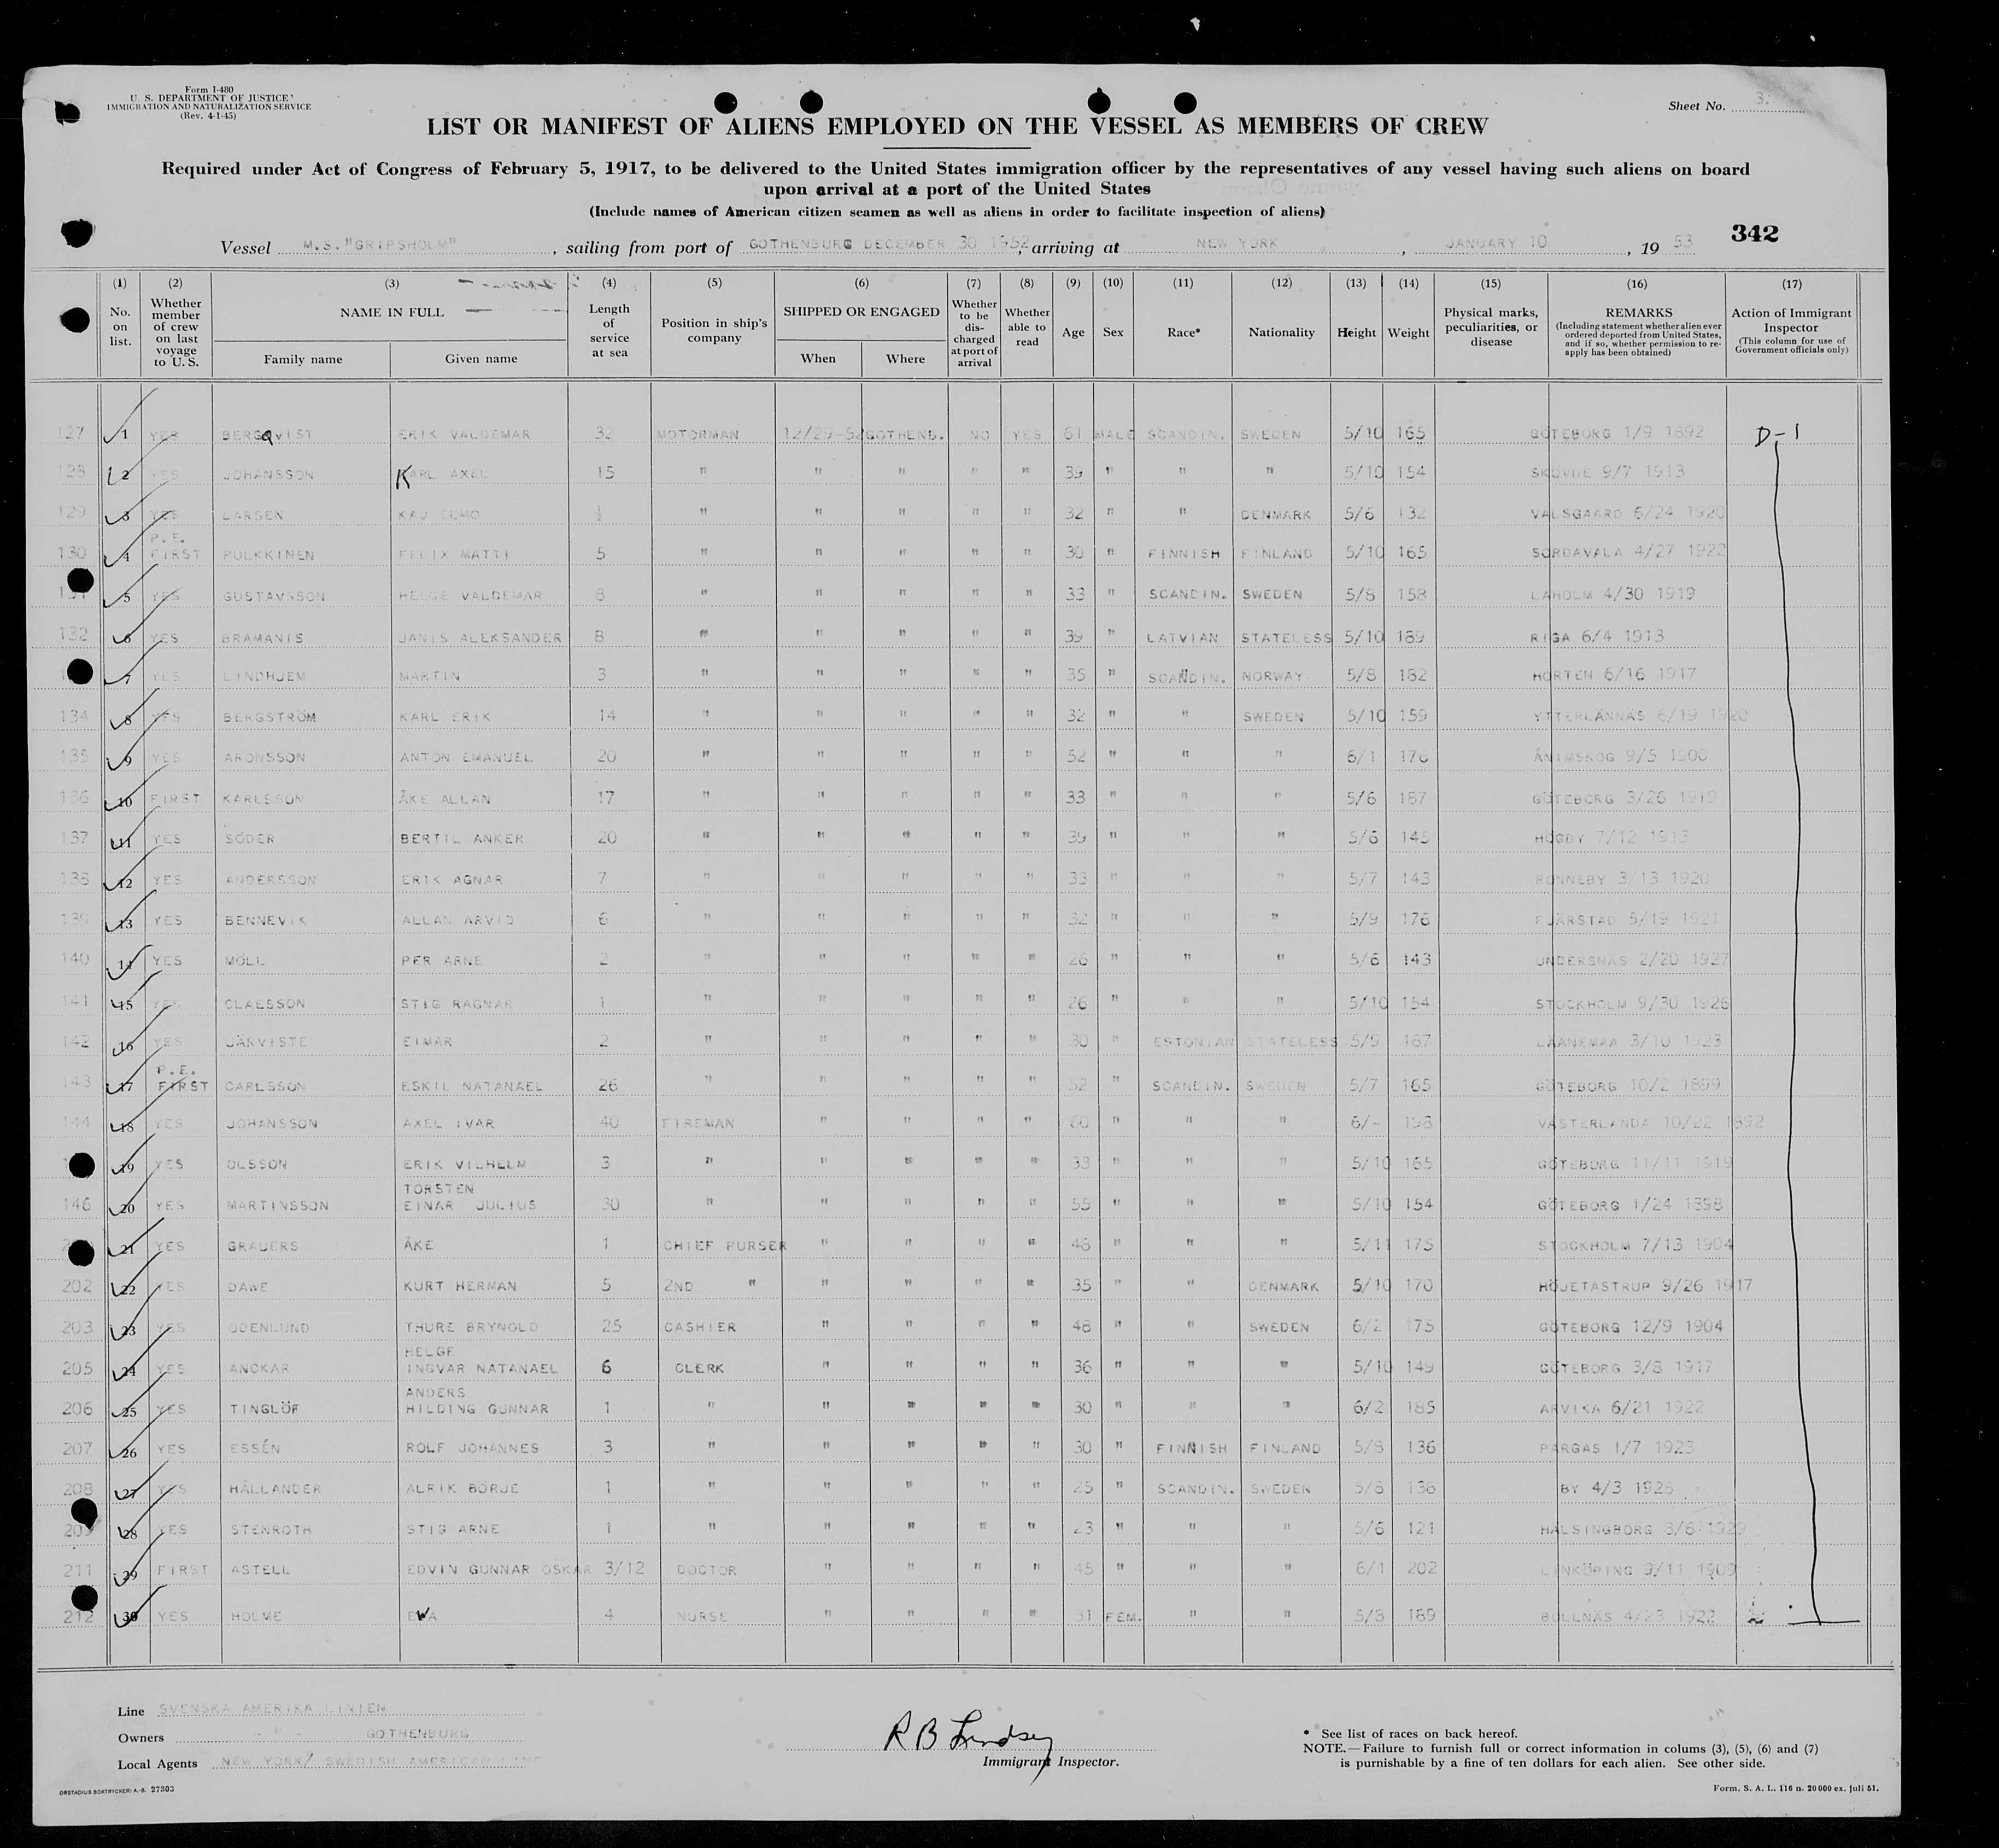 Form I-480
U. S. DEPARTMENT OF JUSTICE
IMMIGRATION AND NATURALIZATION SERVICE
(Rev. 4-1-45)
Sheet No. 3.
LIST OR MANIFEST OF ALIENS EMPLOYED ON THE VESSEL AS MEMBERS OF CREW
Required under Act of Congress of February 5, 1917, to be delivered to the United States immigration officer by the representatives of any vessel having such aliens on board
upon arrival at a port of the United States
(Include names of American citizen seamen as well as aliens in order to facilitate inspection of aliens)
342
Vessel M.S. "GRIPSHOLM", sailing from port of GOTHENBURG DECEMBER 30 1952, arriving at NEW YORK, JANUARY 10, 19 53
(1) No. on list. (2) Whether member of crew on last voyage to U. S. (3) NAME IN FULL Family name Given name (4) Length of service at sea (5) Position in ship's company (6) SHIPPED OR ENGAGED When Where (7) Whether to be discharged at port of arrival (8) Whether able to read (9) Age (10) Sex (11) Race* (12) Nationality (13) Height (14) Weight (15) Physical marks, peculiarities, or disease (16) REMARKS (Including statement whether alien ever ordered deported from United States, and if so, whether permission to re-apply has been obtained) (17) Action of Immigrant Inspector (This column for use of Government officials only)
127 1 YES BERGQVIST ERIK VALDEMAR 32 MOTORMAN 12/29-52 GOTHENB. NO YES 61 MALE SCANDIN. SWEDEN 5/10 165 GÖTEBORG 1/9 1892 D-1
128 2 YES JOHANSSON KARL AXEL 15 " " " " " 39 " " " 5/10 154 SKÖVDE 9/7 1913
129 3 YES LARSEN KAJ ELMO ½ " " " " " 32 " " DENMARK 5/6 132 VALSGAARD 6/24 1920
P.E.
130 4 FIRST PULKKINEN FELIX MATTI 5 " " " " " 30 " FINNISH FINLAND 5/10 165 SORDAVALA 4/27 1922
5 YES GUSTAVSSON HELGE VALDEMAR 8 " " " " " 33 " SCANDIN. SWEDEN 5/8 158 LAHOLM 4/30 1919
132 6 YES BRAMANIS JANIS ALEKSANDER 8 " " " " " 39 " LATVIAN STATELESS 5/10 189 RIGA 6/4 1913
7 YES LINDHJEM MARTIN 3 " " " " " 35 " SCANDIN. NORWAY 5/8 182 HORTEN 6/16 1917
134 8 YES BERGSTRÖM KARL ERIK 14 " " " " " 32 " " SWEDEN 5/10 159 YTTERLÄNNÄS 6/19 1920
135 9 YES ARONSSON ANTON EMANUEL 20 " " " " " 52 " " " 6/1 176 ÅNIMSKOG 9/5 1900
136 10 FIRST KARLSSON ÅKE ALLAN 17 " " " " " 33 " " " 5/6 187 GÖTEBORG 3/26 1919
137 11 YES SÖDER BERTIL ANKER 20 " " " " " 39 " " " 5/6 145 HÖGBY 7/12 1913
138 12 YES ANDERSSON ERIK AGNAR 7 " " " " " 33 " " " 5/7 143 RONNEBY 3/13 1920
139 13 YES BENNEVIK ALLAN ARVID 6 " " " " " 32 " " " 5/9 176 FJÄRSTAD 5/19 1921
140 14 YES MÖLL PER ARNE 2 " " " " " 26 " " " 5/6 143 UNDERSNÄS 2/20 1927
141 15 YES CLAESSON STIG RAGNAR 1 " " " " " 26 " " " 5/10 154 STOCKHOLM 9/30 1926
142 16 YES JÄRVISTE EIMAR 2 " " " " " 30 " ESTONIAN STATELESS 5/9 187 LÄÄNEMAA 3/10 1923
P.E.
143 17 FIRST CARLSSON ESKIL NATANAEL 26 " " " " " 52 " SCANDIN. SWEDEN 5/7 165 GÖTEBORG 10/2 1899
144 18 YES JOHANSSON AXEL IVAR 40 FIREMAN " " " " 60 " " " 6/- 198 VÄSTERLANDA 10/22 1892
19 YES OLSSON ERIK VILHELM 3 " " " " " 33 " " " 5/10 165 GÖTEBORG 11/11 1919
TORSTEN
146 20 YES MARTINSSON EINAR JULIUS 30 " " " " " 55 " " " 5/10 154 GÖTEBORG 1/24 1898
21 YES GRAUERS ÅKE 1 CHIEF PURSER " " " " 48 " " " 5/11 175 STOCKHOLM 7/13 1904
202 22 YES DAWE KURT HERMAN 5 2ND " " " " " 35 " " DENMARK 5/10 170 HÖJETASTRUP 9/26 1917
203 23 YES ODENLUND THURE BRYNOLD 25 CASHIER " " " " 48 " " SWEDEN 6/2 175 GÖTEBORG 12/9 1904
HELGE
205 24 YES ANCKAR INGVAR NATANAEL 6 CLERK " " " " 36 " " " 5/10 149 GÖTEBORG 3/8 1917
ANDERS
206 25 YES TINGLÖF HILDING GUNNAR 1 " " " " " 30 " " " 6/2 185 ARVIKA 6/21 1922
207 26 YES ESSÉN ROLF JOHANNES 3 " " " " " 30 " FINNISH FINLAND 5/8 136 PARGAS 1/7 1923
208 27 YES HÄLLANDER ALRIK BÖRJE 1 " " " " " 25 " SCANDIN. SWEDEN 5/8 138 BY 4/3 1928
209 28 YES STENROTH STIG ARNE 1 " " " " " 23 " " " 5/6 121 HÄLSINGBORG 1929
211 29 FIRST ASTELL EDVIN GUNNAR OSKAR 3/12 DOCTOR " " " " 45 " " " 6/1 202 LINKÖPING 9/11 1909
212 30 YES HOLME EWA 4 NURSE " " " " 31 FEM. " " 5/8 189 BOLLNÄS 4/23 1922
Line SVENSKA AMERIKA LINIEN
Owners - " - GOTHENBURG
Local Agents NEW YORK/ SWEDISH AMERICAN LINE
R B Lindsey
Immigrant Inspector.
* See list of races on back hereof.
NOTE.—Failure to furnish full or correct information in colums (3), (5), (6) and (7)
is purnishable by a fine of ten dollars for each alien. See other side.
ORSTADIUS BOKTRYCKERI A.-B. 27303
Form. S. A. L. 116 n. 20 000 ex. Juli 51.